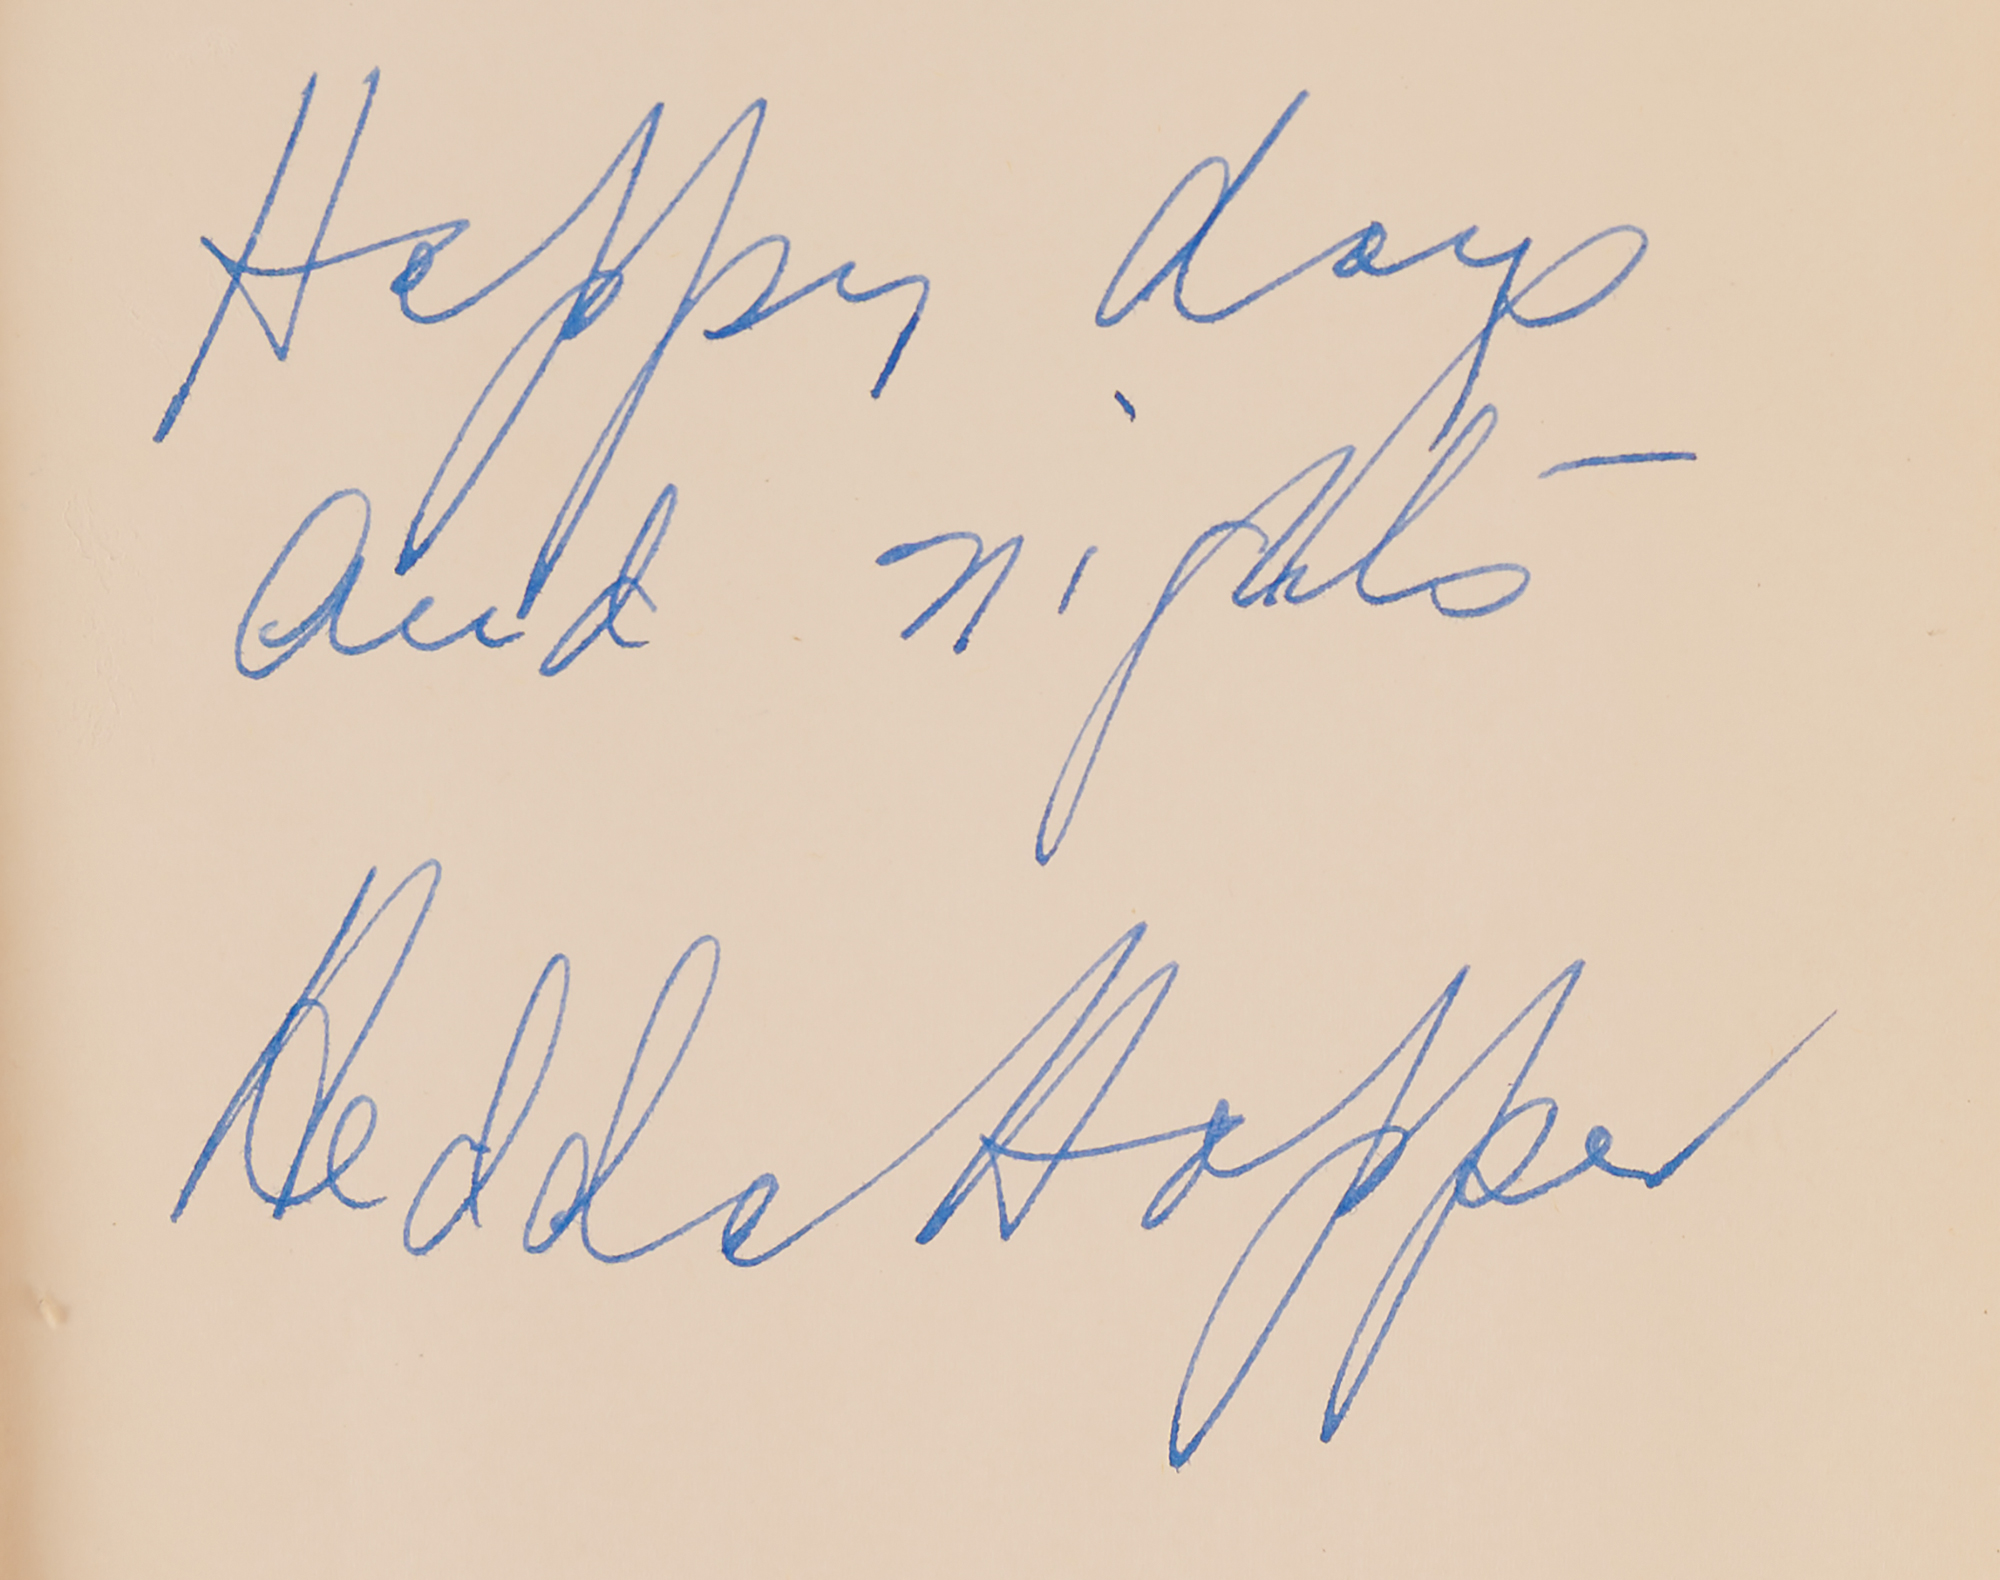 Happy days
and nights –
Hedda Hopper